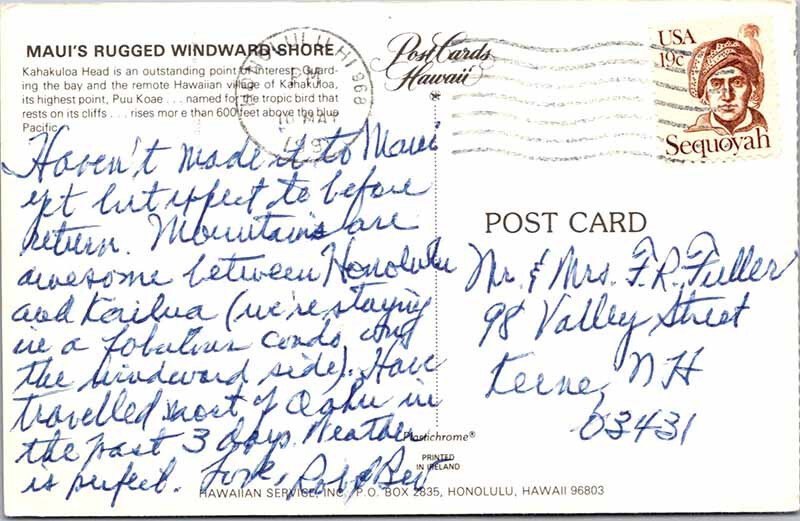 MAUI'S RUGGED WINDWARD SHORE
Kahakuloa Head is an outstanding point of interest. Guard-
ing the bay and the remote Hawaiian village of Kahakuloa,
its highest point, Puu Koae . . . named for the tropic bird that
rests on its cliffs . . . rises mor e than 600 feet above the blue
Pacific.
Post Cards
Hawaii
HONOLULU HI 968
PM
MAY
USA
19c
Sequoyah
Haven't made it to Maui
yet but expect to before
return. Mountains are
awesome between Honolulu
and Kailua (we're staying
in a fabulous condo on
the windward side). Have
travelled most of Oahu in
the past 3 days. Weather
is perfect. Love,
Bev
POST CARD
Mr. & Mrs. F. R. Fuller
98 Valley Street
Keene, NH
03431
Plastichrome®
PRINTED
IN IRELAND
HAWAIIAN SERVICE, INC., P.O. BOX 2835, HONOLULU, HAWAII 96803